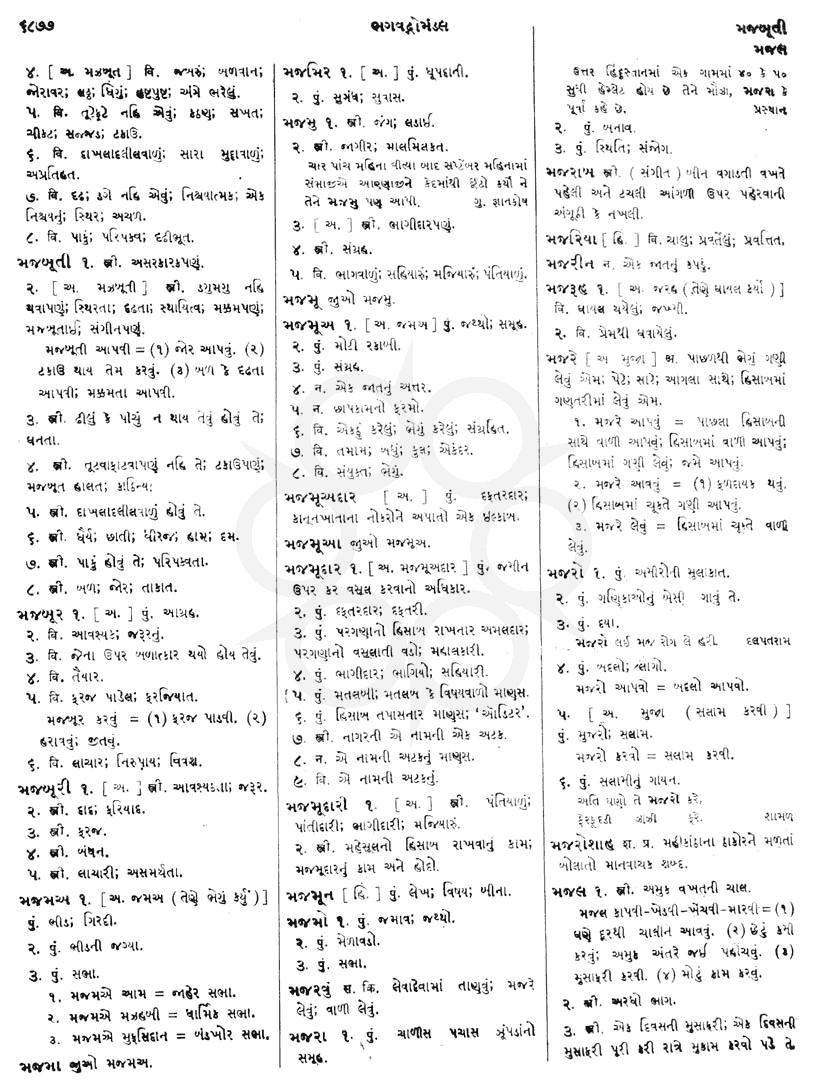 ૬૮૭૭
ભગવદ્ગોમંડલ
મજબૂતી
મજલ
૪. [ અ. મઝબૂત ] વિ. જબરું; બળવાન;
જોરાવર; લઠ્ઠ; ધિંગું; હૃષ્ટપુષ્ટ; અંગે ભરેલું.
૫. વિ. તૂટેફૂટે નહિ એવું; કઠણ; સખત;
ચીકટ; સજ્જડ; ટકાઉ.
૬. વિ. દાખલાદલીલવાળું; સારા મુદ્દાવાળું;
અપ્રતિહત.
૭. વિ. દૃઢ; ડગે નહિ એવું; નિશ્ચયાત્મક; એક
નિશ્ચયનું; સ્થિર; અચળ.
૮. વિ. પાકું; પરિપક્વ; દૃઢીભૂત.
મજબૂતી ૧. સ્ત્રી. અસરકારકપણું.
૨. [ અ. મઝબૂતી ] સ્ત્રી. ડગુમગુ નહિ
થવાપણું; સ્થિરતા; દૃઢતા; સ્થાયિત્વ; મક્કમપણું;
મજબૂતાઈ; સંગીનપણું.
મજબૂતી આપવી = (૧) જોર આપવું. (૨)
ટકાઉ થાય તેમ કરવું. (૩) બળ કે દૃઢતા
આપવી; મક્કમતા આપવી.
૩. સ્ત્રી. ઢીલું કે પોચું ન થાય તેવું હોવું તે;
ઘનતા.
૪. સ્ત્રી. તૂટવાફાટવાપણું નહિ તે; ટકાઉપણું;
મજબૂત હાલત; કાઠિન્ય.
૫. સ્ત્રી. દાખલાદલીલવાળું હોવું તે.
૬. સ્ત્રી. ધૈર્ય; છાતી; ધીરજ; હામ; દમ.
૭. સ્ત્રી. પાકું હોવું તે; પરિપક્વતા.
૮. સ્ત્રી. બળ; જોર; તાકાત.
મજબૂર ૧. [ અ. ] પું. આગ્રહ.
૨. વિ. આવશ્યક; જરૂરનું.
૩. વિ. જેના ઉપર બળાત્કાર થયો હોય તેવું.
૪. વિ. તૈયાર.
૫. વિ. ફરજ પાડેલ; ફરજિયાત.
મજબૂર કરવું = (૧) ફરજ પાડવી. (૨)
હરાવવું; જીતવું.
૬. વિ. લાચાર; નિરુપાય; વિવશ.
મજબૂરી ૧. [ અ. ] સ્ત્રી. આવશ્યકતા; જરૂર.
૨. સ્ત્રી. દાદ; ફરિયાદ.
૩. સ્ત્રી. ફરજ.
૪. સ્ત્રી. બંધન.
૫. સ્ત્રી. લાચારી; અસમર્થતા.
મજમઅ ૧. [ અ. જમઅ (તેણે ભેગું કર્યું) ]
પું. ભીડ; ગિરદી.
૨. પું. ભીડની જગ્યા.
૩. પું. સભા.
૧. મજમએ આમ = જાહેર સભા.
૨. મજમએ મઝહબી = ધાર્મિક સભા.
૩. મજમએ મુફસિદાન = બંડખોર સભા.
મજમા જુઓ મજમઅ.
મજમિર ૧. [ અ. ] પું. ધૂપદાની.
૨. પું. સુગંધ; સુવાસ.
મજમુ ૧. સ્ત્રી. જંગ; લડાઈ.
૨. સ્ત્રી. જાગીર; માલમિલકત.
ચાર પાંચ મહિના વીત્યા બાદ સપ્ટેંબર મહિનામાં
સંભાજીએ આરણાજીને કેદમાંથી છૂટો કર્યો ને
તેને મજમુ પણ આપી. ગુ. જ્ઞાનકોષ
૩. [ અ. ] સ્ત્રી. ભાગીદારપણું.
૪. સ્ત્રી. સંગ્રહ.
૫. વિ. ભાગવાળું; સહિયારું; મજિયારું; પંતિયાળું.
મજમૂ જુઓ મજમુ.
મજમૂઅ ૧. [ અ. જમઅ ] પું. જથ્થો; સમૂહ.
૨. પું. મોટી રકાબી.
૩. પું. સંગ્રહ.
૪. ન. એક જાતનું અત્તર.
૫. ન. છાપકામનો ફરમો.
૬. વિ. એકઠું કરેલું; ભેગું કરેલું; સંગ્રહિત.
૭. વિ. તમામ; બધું; કુલ; એકંદર.
૮. વિ. સંયુક્ત; ભેગું.
મજમૂઅદાર [ અ. ] પું. દફતરદાર;
કાનૂનખાતાના નોકરોને અપાતો એક ઇલ્કાબ.
મજમૂઆ જુઓ મજમૂઅ.
મજમૂદાર ૧. [ અ. મજમૂઅદાર ] પું. જમીન
ઉપર કર વસૂલ કરવાનો અધિકાર.
૨. પું. દફતરદાર; દફતરી.
૩. પું. પરગણાનો હિસાબ રાખનાર અમલદાર;
પરગણાનો વસૂલાતી વડો; મહાલકારી.
૪. પું. ભાગીદાર; ભાગિયો; સહિયારી.
૫. પું. મતલબી; મતલબ કે વિષયવાળો માણસ.
૬. પું. હિસાબ તપાસનાર માણસ; ‘ઑડિટર’.
૭. સ્ત્રી. નાગરની એ નામની એક અટક.
૮. ન. એ નામની અટકનું માણસ.
૯. વિ. એ નામની અટકનું.
મજમૂદારી ૧. [ અ. ] સ્ત્રી. પંતિયાળું;
પાંતીદારી; ભાગીદારી; મજિયારું.
૨. સ્ત્રી. મહેસૂલનો હિસાબ રાખવાનું કામ;
મજમૂદારનું કામ અને હોદ્દો.
મજમૂન [ હિં. ] પું. લેખ; વિષય; બીના.
મજમો ૧. પું. જમાવ; જથ્થો.
૨. પું. મેળાવડો.
૩. પું. સભા.
મજરવું સ. ક્રિ. લેવાદેવામાં તાણવું; મજરે
લેવું; વાળી લેવું.
મજરા ૧. પું. ચાળીસ પચાસ ઝૂંપડાંનો
સમૂહ.
ઉત્તર હિંદુસ્તાનમાં એક ગામમાં ૪૦ કે ૫૦
સુધી હેમ્લેટ હોય છે તેને મૌઝા, મજરા કે
પૂર્વા કહે છે. પ્રસ્થાન
૨. પું. બનાવ.
૩. પું. સ્થિતિ; સંજોગ.
મજરાબ સ્ત્રી. ( સંગીત ) બીન વગાડતી વખતે
પહેલી અને ટચલી આંગળી ઉપર પહેરવાની
અંગૂઠી કે નખલી.
મજરિયા [ હિં. ] વિ. ચાલુ; પ્રવર્તેલું; પ્રવર્તિત.
મજરીન ન. એક જાતનું કપડું.
મજરૂહ ૧. [ અ. જરહ (તેણે ઘાયલ કર્યો) ]
વિ. ઘાયલ થયેલું; જખ્મી.
૨. વિ. પ્રેમથી ઘવાયેલું.
મજરે [ અ મુજ્રા ] અ. પાછળથી ભેગું ગણી
લેવું એમ; પેટે; સાટે; આગલા સાથે; હિસાબમાં
ગણતરીમાં લેવું એમ.
૧. મજરે આપવું = પાછલા હિસાબની
સાથે વાળી આપવું; હિસાબમાં વાળી આપવું;
હિસાબમાં ગણી લેવું; જમે આપવું.
૨. મજરે આવવું = (૧) ફળદાયક થવું.
(૨) હિસાબમાં ચૂકતે ગણી આપવું.
૩. મજરે લેવું = હિસાબમાં ચૂકતે વાળી
લેવું.
મજરો ૧. પું. અમીરોની મુલાકાત.
૨. પું. ગણિકાઓનું બેસી ગાવું તે.
૩. પું. દયા.
મજરો લઈ મજ રોગ લે હરી દલપતરામ
૪. પું. બદલો; લાગો.
મજરો આપવો = બદલો આપવો.
૫. [ અ. મુજ્રા ( સલામ કરવી ) ]
પું. મુજરો; સલામ.
મજરો કરવો = સલામ કરવી.
૬. પું. સલામીનું ગાયન.
અતિ ઘણો તે મજરો કરે,
ફેરફૂદડી ઝાઝી ફરે. શામળ
મજરોશાહ શ. પ્ર. મહીકાંઠાના ઠાકોરને મળતાં
બોલાતો માનવાચક શબ્દ.
મજલ ૧. સ્ત્રી. અમુક વખતની ચાલ.
મજલ કાપવી-ખેડવી-ખેંચવી-મારવી = (૧)
ઘણે દૂરથી ચાલીને આવવું. (૨) છેટું કમી
કરવું; અમુક અંતરે જઈ પહોંચવું. (૩)
મુસાફરી કરવી. (૪) મોટું કામ કરવું.
૨. સ્ત્રી. અરધો ભાગ.
૩. સ્ત્રી. એક દિવસની મુસાફરી; એક દિવસની
મુસાફરી પૂરી કરી રાત્રે મુકામ કરવો પડે તે.